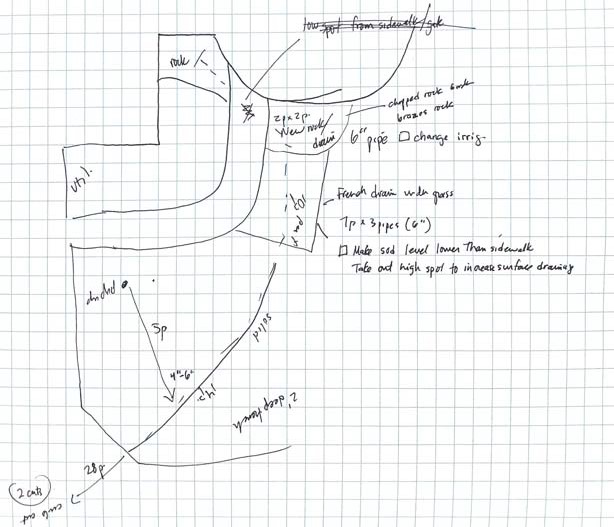 low spot from sidewalk/gate
rock
chopped rock
2p x 2p
New rock/
drain
6" pipe □ change irrig.
util.
10p
French drain under grass
1p x 3 pipes (6")
□ Make sod level lower than sidewalk
Take out high spot to increase surface draining
3p
solid
4"-6"
14p
2' deep trench
28p
2 cuts
curb cut